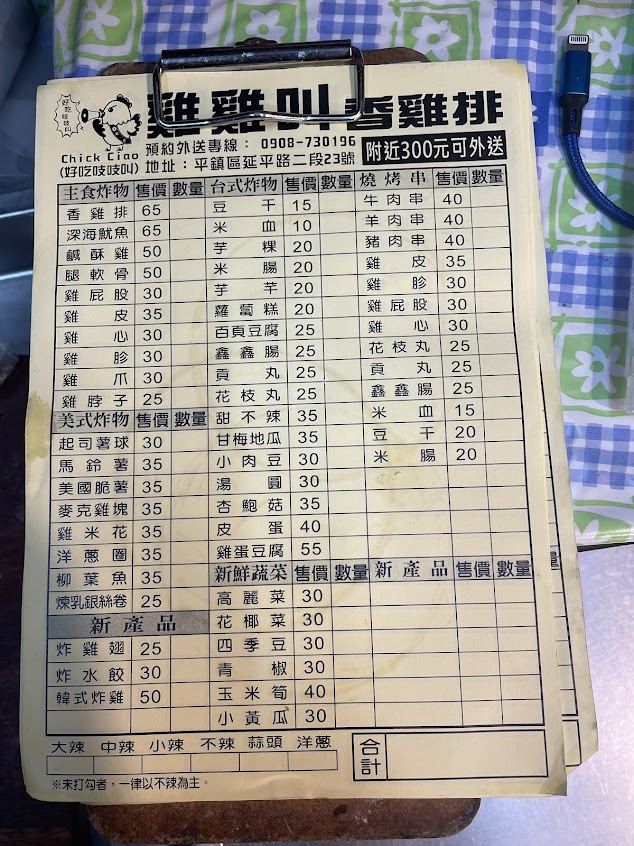 好吃吱吱叫
雞雞叫香雞排
Chick Ciao
(好吃吱吱叫)
預約外送專線： 0908-730196
地址：平鎮區延平路二段23號
附近300元可外送
主食炸物 售價 數量
香雞排 65
深海魷魚 65
鹹酥雞 50
腿軟骨 50
雞屁股 30
雞皮 35
雞心 30
雞胗 30
雞爪 30
雞脖子 25
美式炸物 售價 數量
起司薯球 30
馬鈴薯 35
美國脆薯 35
麥克雞塊 35
雞米花 35
洋蔥圈 35
柳葉魚 35
煉乳銀絲卷 25
新產品
炸雞翅 25
炸水餃 30
韓式炸雞 50
台式炸物 售價 數量
豆干 15
米血 10
芋粿 20
米腸 20
芋芊 20
蘿蔔糕 20
百頁豆腐 25
鑫鑫腸 25
貢丸 25
花枝丸 25
甜不辣 35
甘梅地瓜 35
小肉豆 30
湯圓 30
杏鮑菇 35
皮蛋 40
雞蛋豆腐 55
新鮮蔬菜 售價 數量
高麗菜 30
花椰菜 30
四季豆 30
青椒 30
玉米筍 40
小黃瓜 30
燒烤串 售價 數量
牛肉串 40
羊肉串 40
豬肉串 40
雞皮 35
雞胗 30
雞屁股 30
雞心 30
花枝丸 25
貢丸 25
鑫鑫腸 25
米血 15
豆干 20
米腸 20
新產品 售價 數量
大辣 中辣 小辣 不辣 蒜頭 洋蔥
合計
※未打勾者，一律以不辣為主。